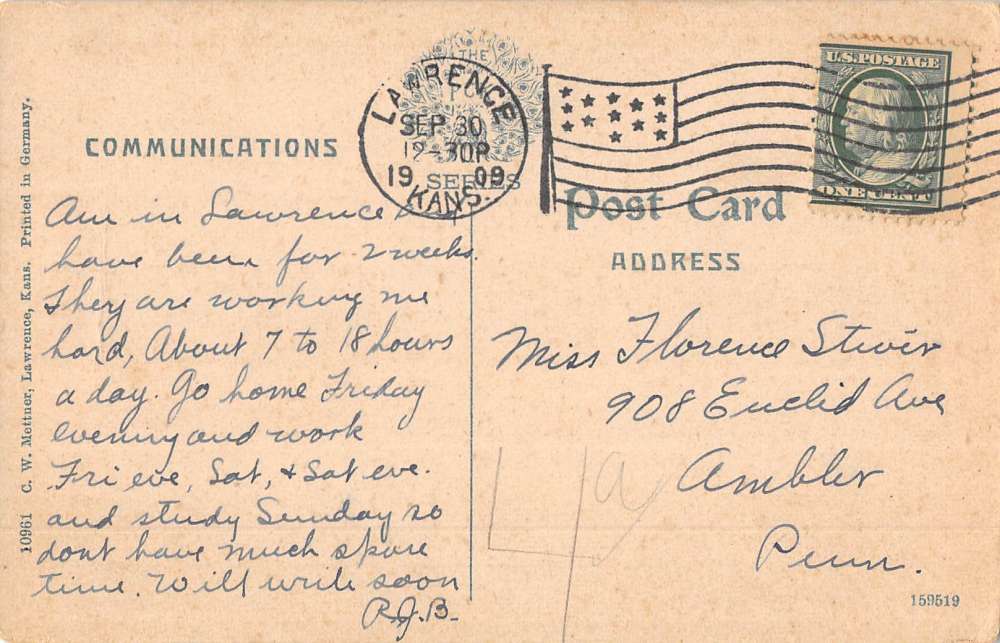 THE
LAWRENCE
SEP 30
12-30P
1909
KANS.
SERIES
U.S. POSTAGE
ONE CENT
COMMUNICATIONS
Post Card
ADDRESS
Am in Lawrence &
have been for 2 weeks.
They are working me
hard, About 7 to 18 hours
a day. Go home Friday
evening and work
Fri eve, Sat, + Sat eve.
and study Sunday so
dont have much spare
time. Will write soon
R.J.B.
Miss Florence
908 Euclid Ave
Ambler
Penn.
10961 C. W. Mettner, Lawrence, Kans. Printed in Germany.
159519